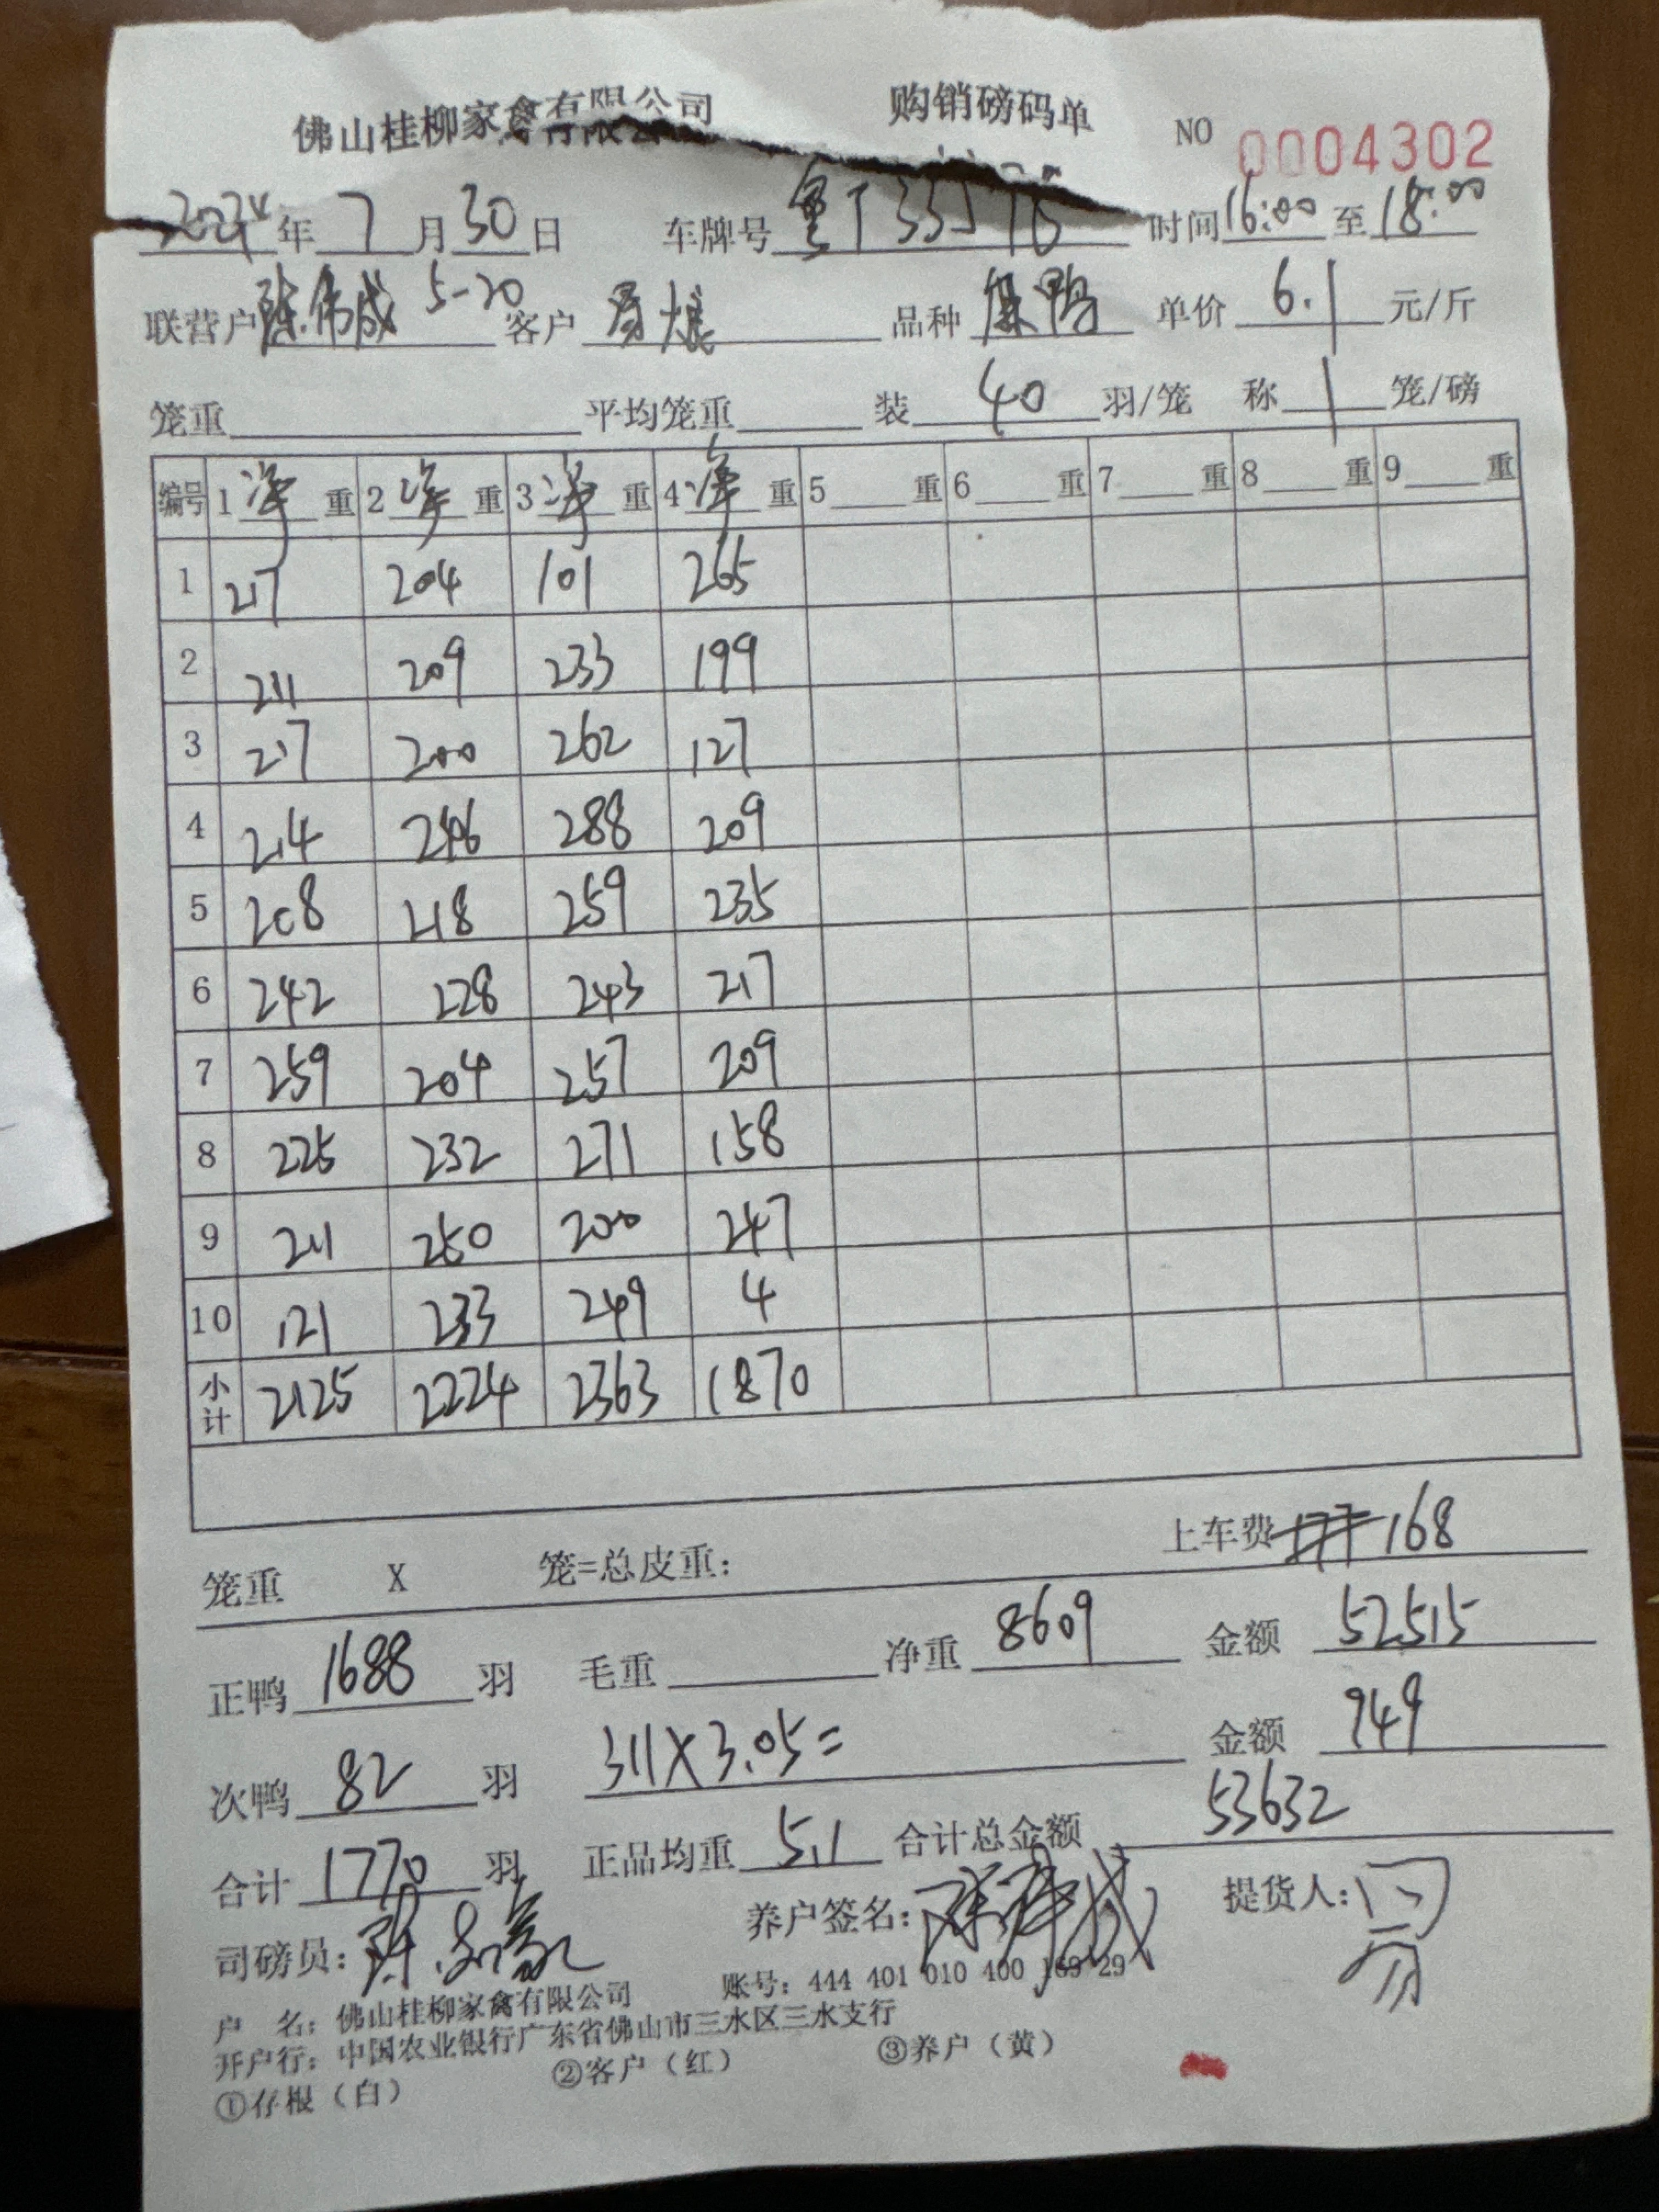 佛山桂柳家禽有限公司 购销磅码单 NO 0004302
2024年 7 月 30 日 车牌号 时间 16:00 至 18:00
联营户 陈伟成 5-20 客户 品种 单价 6.1 元/斤
笼重 平均笼重 装 40 羽/笼 称 1 笼/磅
编号 1 净 重 2 净 重 3 净 重 4 净 重 5 重 6 重 7 重 8 重 9 重
1 217 204 101 265
2 211 209 233 199
3 217 200 262 127
4 214 246 288 209
5 208 218 259 235
6 242 228 243 217
7 259 204 257 209
8 225 232 271 158
9 211 250 200 247
10 121 233 249 4
小计 2125 2224 2363 1870
上车费 168
笼重 X 笼=总皮重:
正鸭 1688 羽 毛重 净重 8609 金额 52515
次鸭 82 羽 311X3.05= 金额 949
合计 1770 羽 正品均重 5.1 合计总金额 53632
司磅员: 养户签名: 提货人:
户 名: 佛山桂柳家禽有限公司 账号: 444 401 010 400 169 29
开户行: 中国农业银行广东省佛山市三水区三水支行
①存根（白） ②客户（红） ③养户（黄）